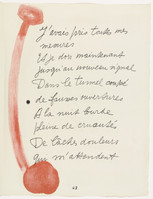 J'avais pris toutes mes
mesures
Et je dors maintenant
jusqu'au nouveau signal
Dans le tunnel coupé
de fausses ouvertures
À la nuit lourde
pleine de cruautés
De lâches douleurs
qui m'attendent